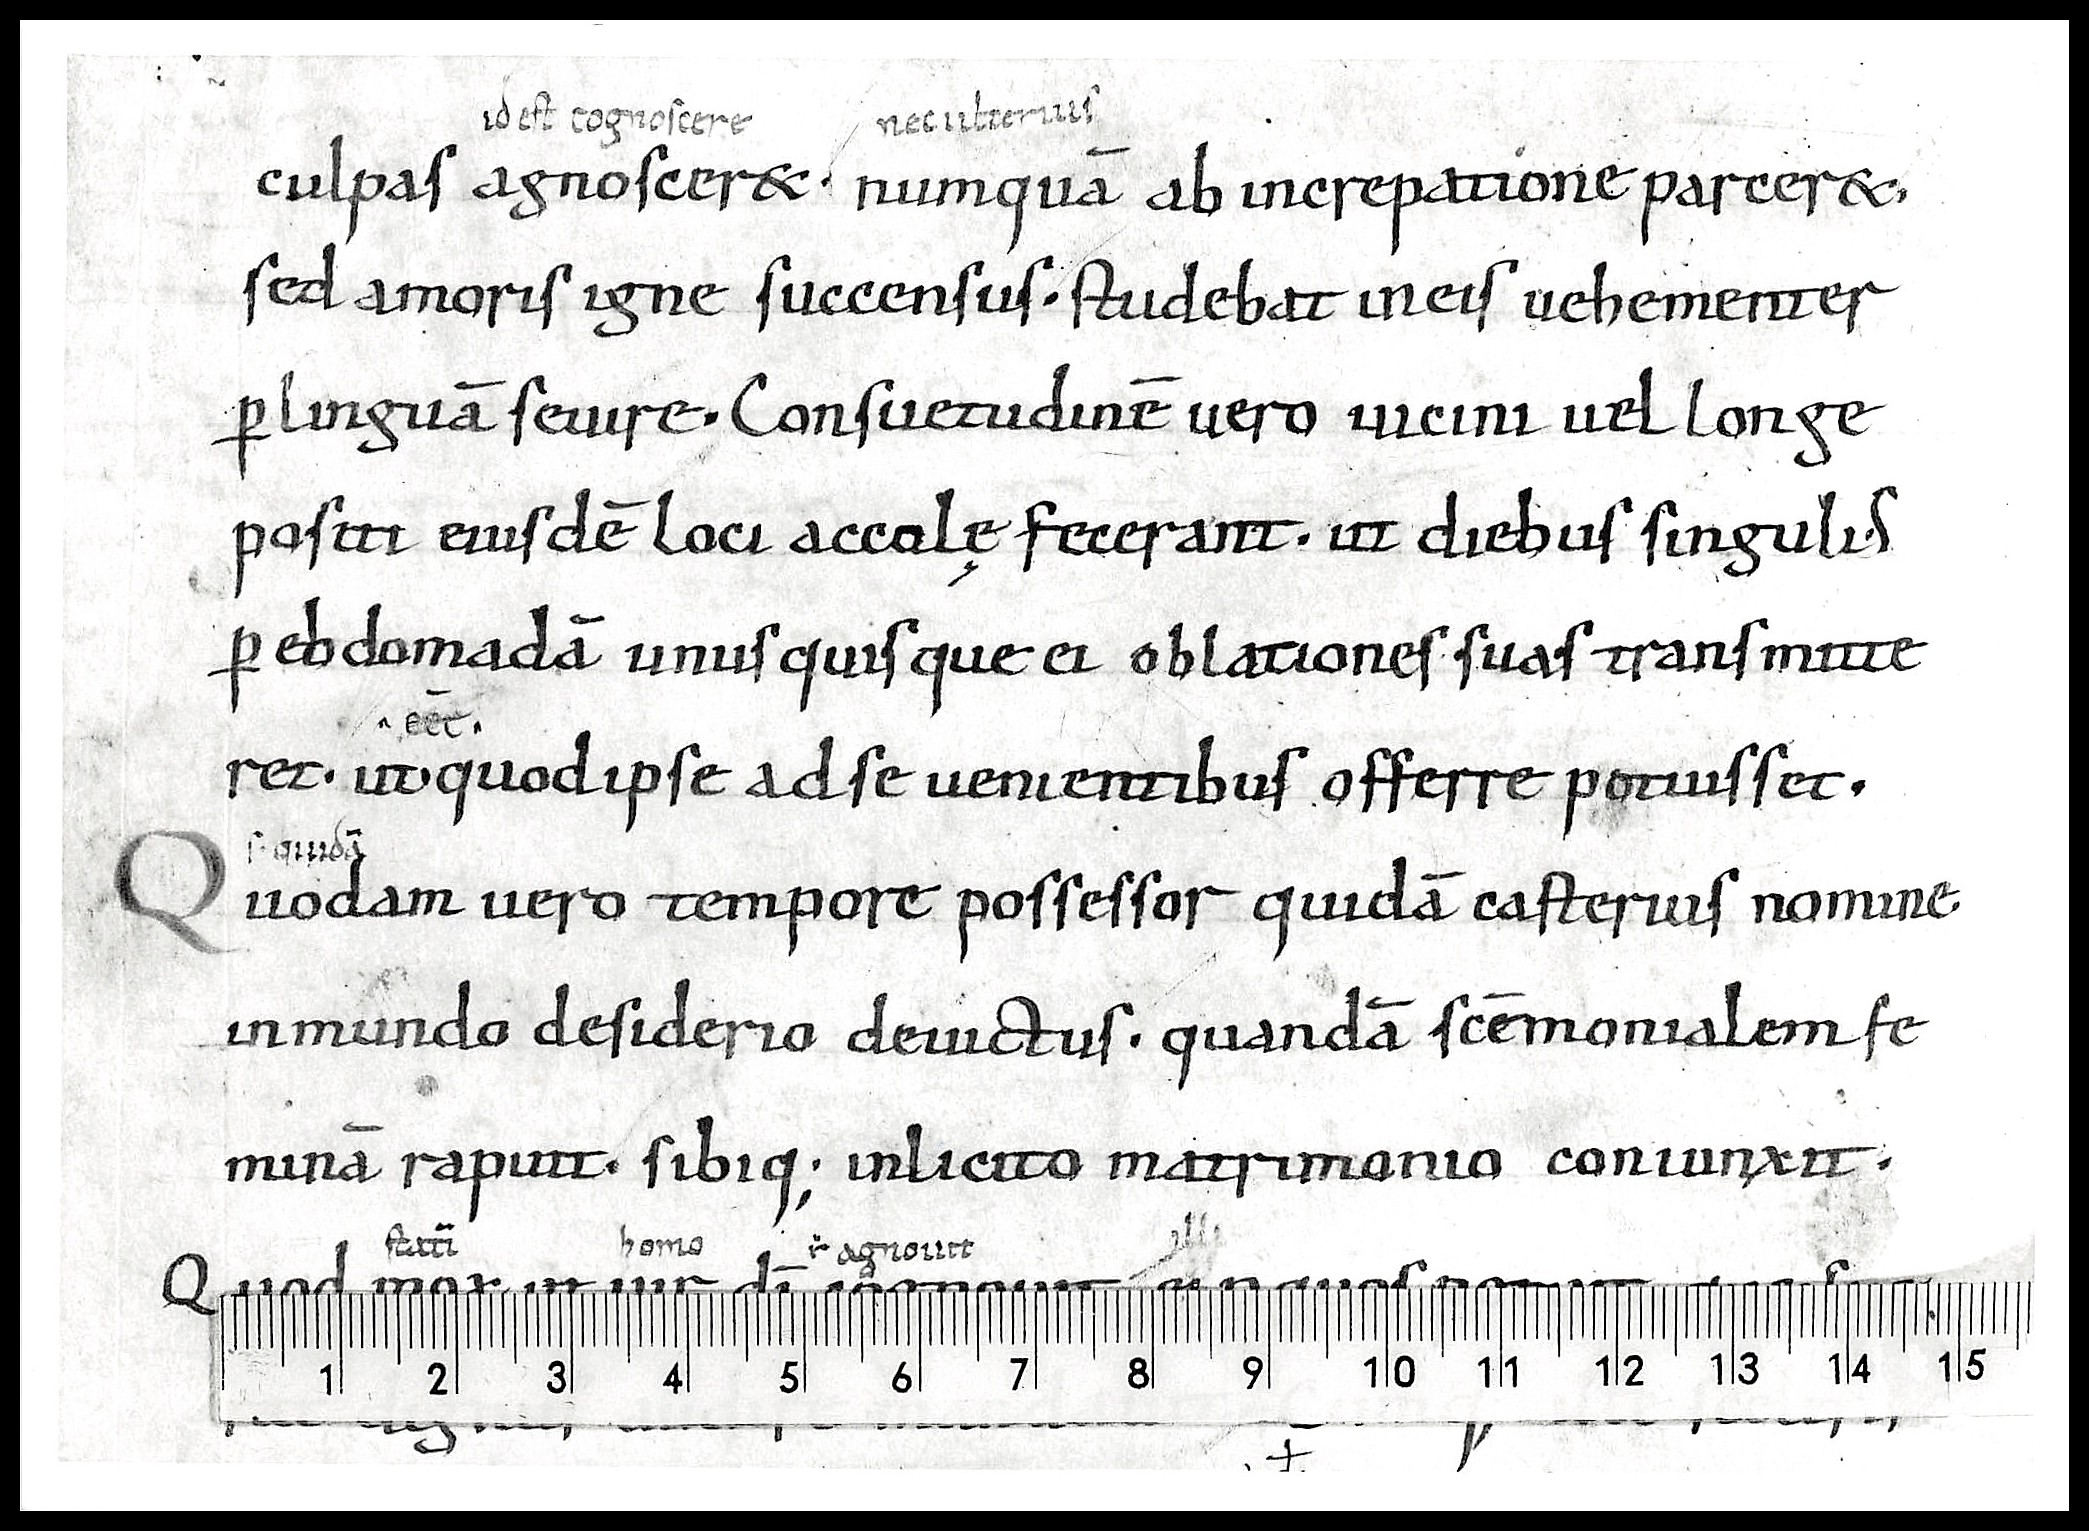 id est cognoscere nec ulterius
culpas agnoscer&· numquā ab increpatione parcer&·
sed amoris igne succensus· studebat in eis uehementer
ꝑ linguā seuire· Consuetudinē uero uicini uel longe
positi eiusdē loci accolę fecerant· ut diebus singulis
ꝑ ebdomadā unusquisque ei oblationes suas transmitte
eēt·
ret· ut quod ipse ad se uenientibus offerre potuisset·
s· quidā
Quodam uero tempore possessor quidā casterius nomine
inmundo desiderio deuictus· quandā scēmonialem fe
minā rapuit· sibiq; inlicito matrimonio coniunxit·
homo agnouit illi
Quod mox ut uir dī
1 2 3 4 5 6 7 8 9 10 11 12 13 14 15